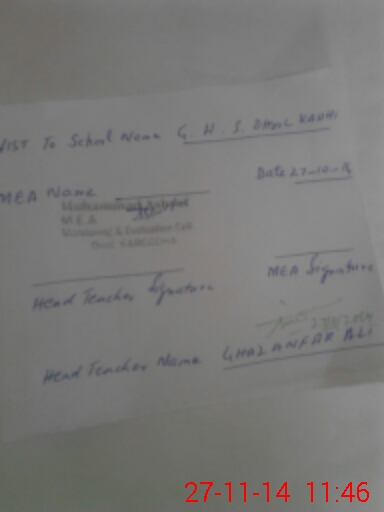 VIST To School Name G. H. S. DHOL KADHI
Date 27-10-14
MEA Name
Muhammad Ashraf
M.E.A
Monitoring & Evaluation Cell
Distt. SARGODHA
MEA Signature
Head Teacher Signature
Head Teacher Name GHAZANFAR ALI
27-11-14 11:46